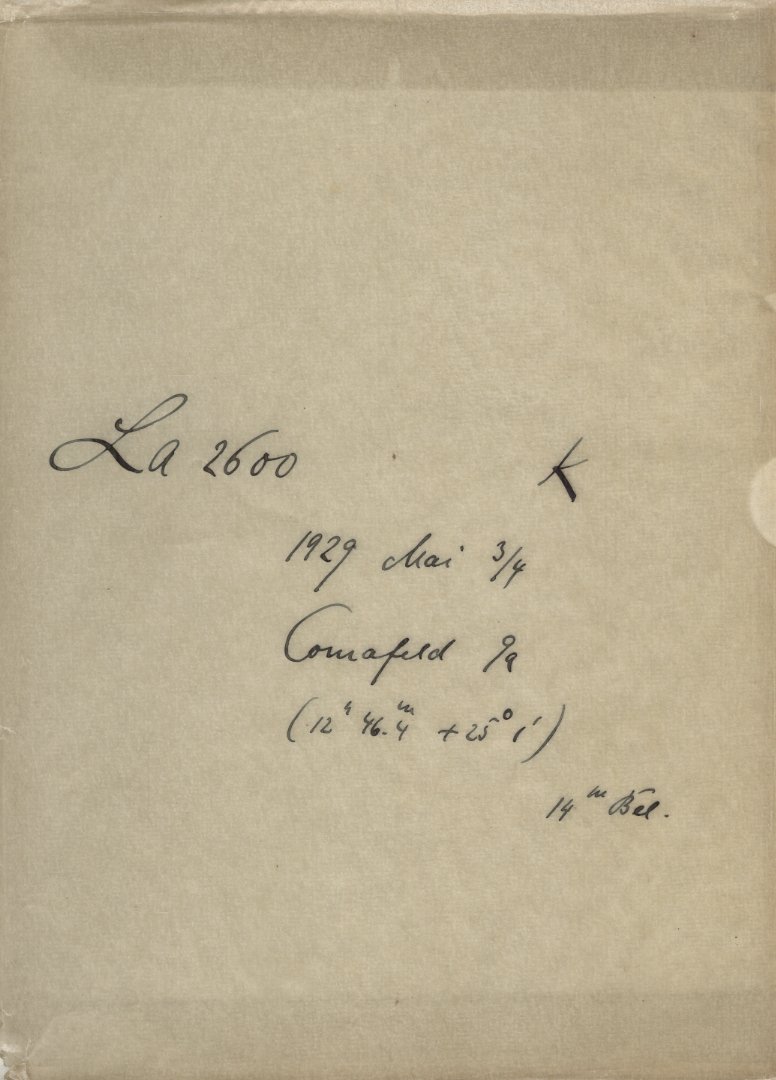 La 2600 K
1929 Mai 3/4
Comafeld 9a
(12ʰ 46.ᵐ4 +25° 1')
14ᵐ Bel.